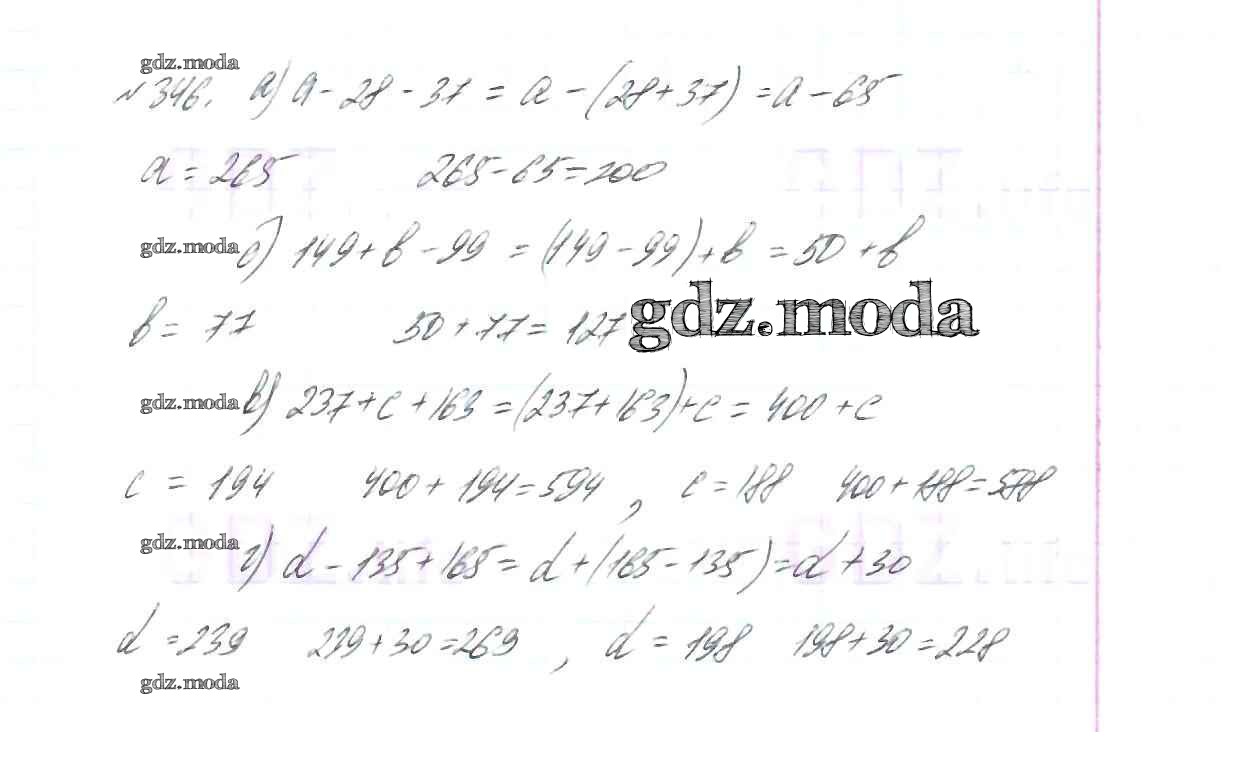 gdz.moda
№ 346. а) a - 28 - 37 = a - (28 + 37) = a - 65
a = 265 265 - 65 = 200
gdz.moda б) 149 + b - 99 = (149 - 99) + b = 50 + b
b = 77 50 + 77 = 127 gdz.moda
gdz.moda в) 237 + c + 163 = (237 + 163) + c = 400 + c
c = 194 400 + 194 = 594 , c = 188 400 + 188 = 588
gdz.moda г) d - 135 + 165 = d + (165 - 135) = d + 30
d = 239 239 + 30 = 269 , d = 198 198 + 30 = 228
gdz.moda